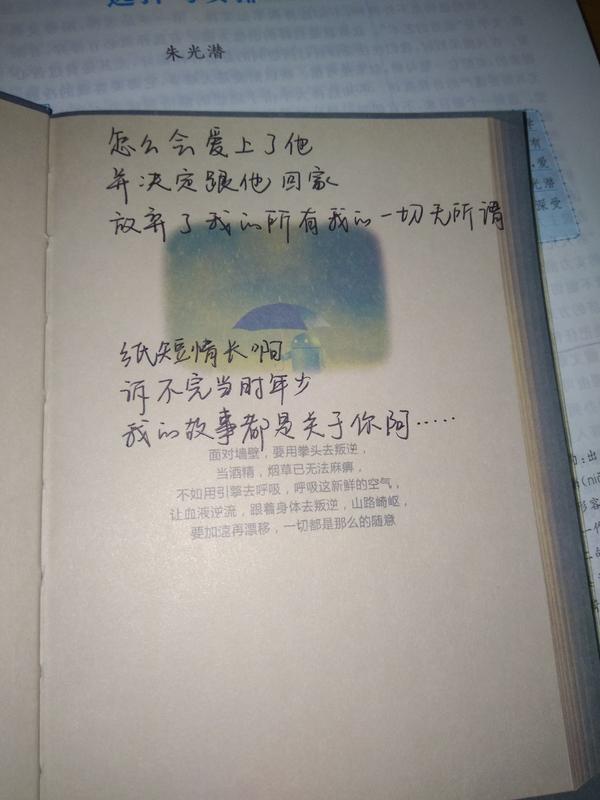 朱光潜
怎么会爱上了他
并决定跟他回家
放弃了我的所有我的一切无所谓
纸短情长啊
诉不完当时年少
我的故事都是关于你啊·····
面对墙壁，要用拳头去叛逆，
当酒精，烟草已无法麻痹，
不如用引擎去呼吸，呼吸这新鲜的空气，
让血液逆流，跟着身体去叛逆，山路崎岖，
要加速再漂移，一切都是那么的随意